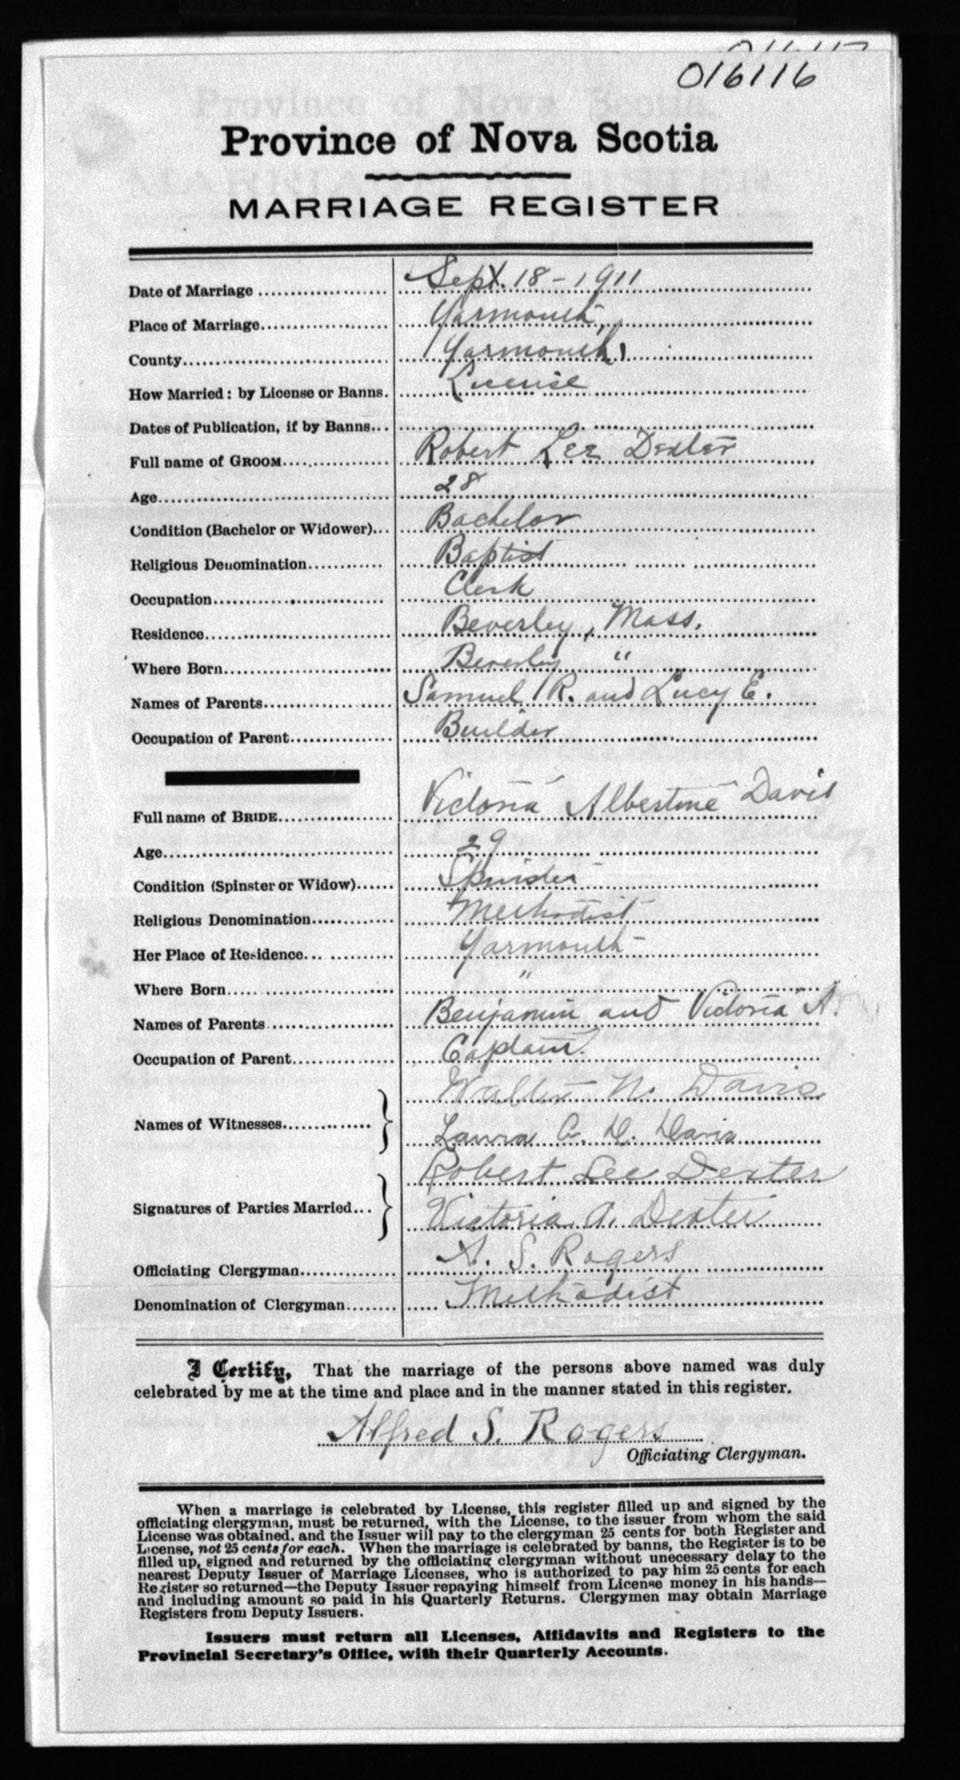 016116
Province of Nova Scotia
MARRIAGE REGISTER
Date of Marriage Sept. 18-1911
Place of Marriage Yarmouth,
County Yarmouth,
How Married: by License or Banns. License
Dates of Publication, if by Banns
Full name of GROOM Robert Lee Dexter
Age 28
Condition (Bachelor or Widower) Bachelor
Religious Denomination Baptist
Occupation Clerk
Residence Beverley, Mass.
Where Born Beverley "
Names of Parents Samuel R. and Lucy E.
Occupation of Parent Builder
Full name of BRIDE Victoria Albertine Davis
Age 29
Condition (Spinster or Widow) Spinster
Religious Denomination Methodist
Her Place of Residence Yarmouth
Where Born "
Names of Parents Benjamin and Victoria A.
Occupation of Parent Captain.
Names of Witnesses Walter N. Davis
Laura A. D. Davis
Signatures of Parties Married Robert Lee Dexter
Victoria A. Dexter
Officiating Clergyman A. S. Rogers
Denomination of Clergyman Methodist
I Certify, That the marriage of the persons above named was duly
celebrated by me at the time and place and in the manner stated in this register.
Alfred S. Rogers
Officiating Clergyman.
When a marriage is celebrated by License, this register filled up and signed by the
officiating clergyman, must be returned, with the License, to the issuer from whom the said
License was obtained, and the Issuer will pay to the clergyman 25 cents for both Register and
License, not 25 cents for each. When the marriage is celebrated by banns, the Register is to be
filled up, signed and returned by the officiating clergyman without unnecessary delay to the
nearest Deputy Issuer of Marriage Licenses, who is authorized to pay him 25 cents for each
Register so returned—the Deputy Issuer repaying himself from License money in his hands—
and including amount so paid in his Quarterly Returns. Clergymen may obtain Marriage
Registers from Deputy Issuers.
Issuers must return all Licenses, Affidavits and Registers to the
Provincial Secretary's Office, with their Quarterly Accounts.